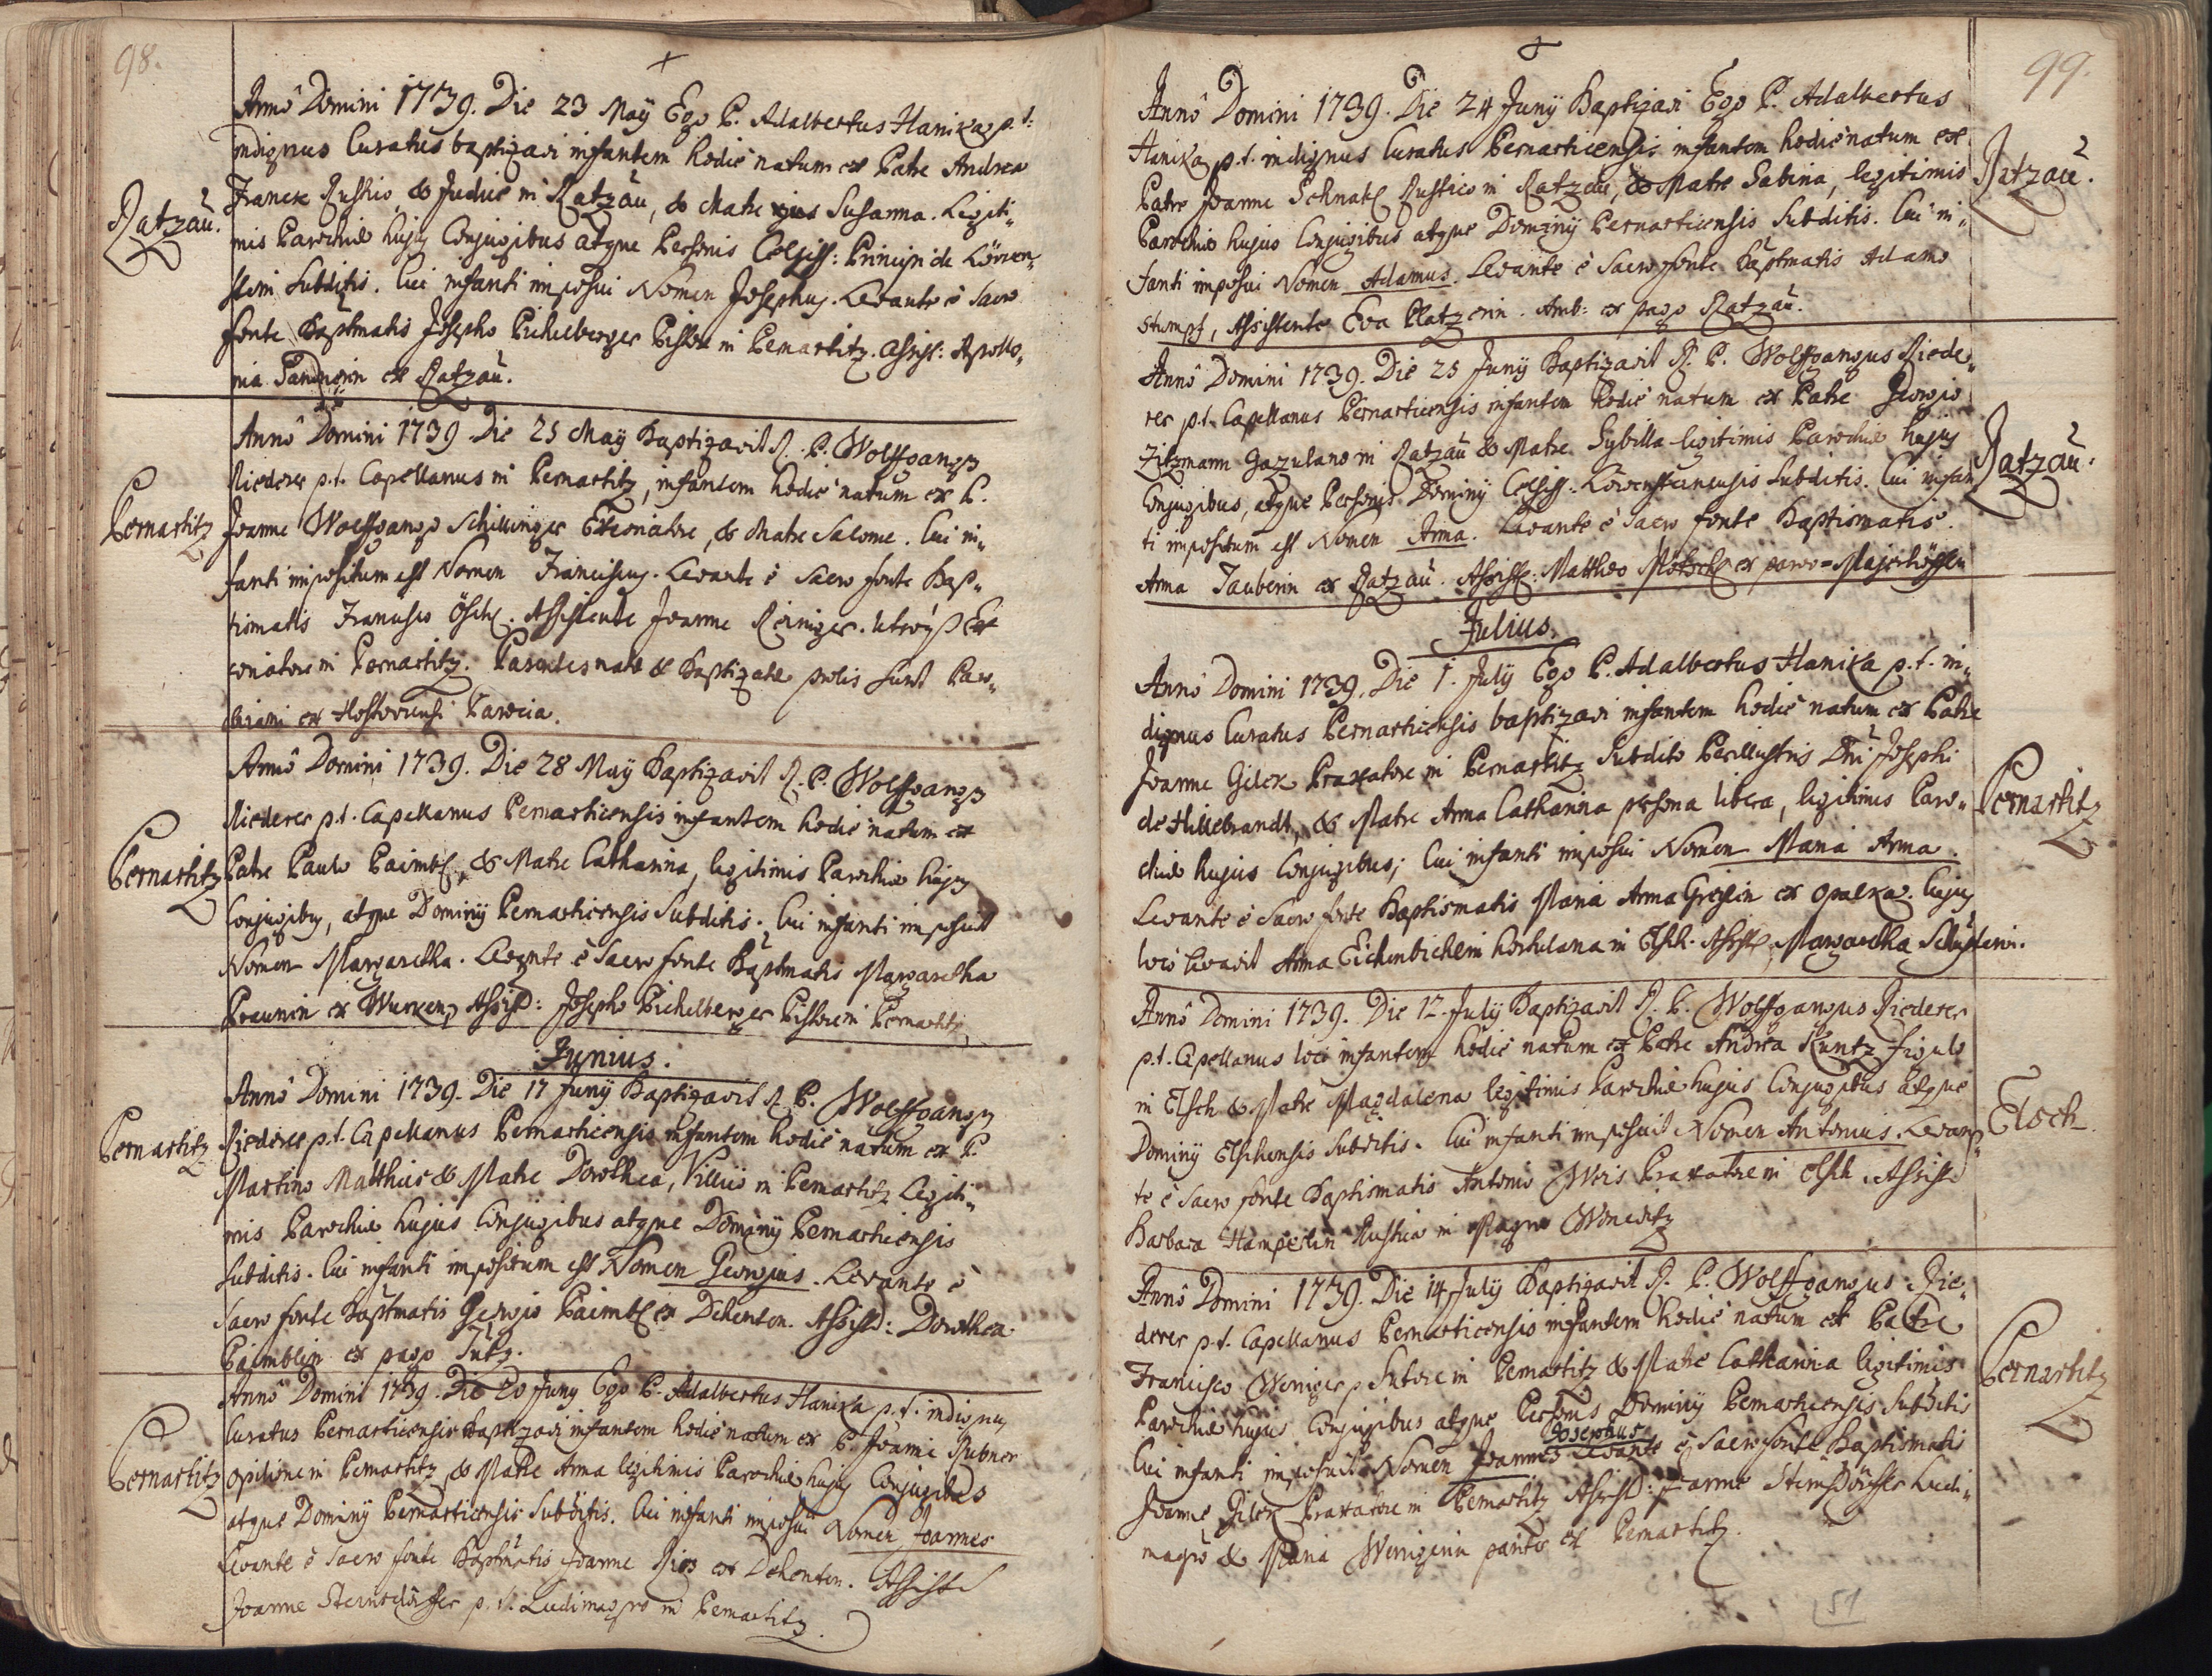 98.
Annô Domini 1739. Die 23 Maÿ Ego P. Adalbertus Hanika p. t:
indignus Curatus baptizavi infantem hodiè natum ex Patre Andrea
Franck Rustico, & Judice in Ratzau, & Matre ejus Susanna. Legiti„
Ratzau.
mis Parochiæ hujus Conjugibus atque Personis Celsiss: Principi de Löwen„
stein Subditis. Cui infanti imposui Nomen Josephus. Levante è Sacro
fonte Baptmatis Josepho Pichelberger Pistore in Pernartitz. Assist: Apollo„
nia ex Ratzau.
Annô Domini 1739 Die 25 Maÿ Baptizavit R. P. Wolffgangus
Riederer p.t. Capellanus in Pernartitz, infantem hodiè natum ex P.
Pernartitz
Joanne Wolffgango Schillinger & Matre Salome. Cui in„
fanti impositum est Nomen Franciscus. Levante è Sacro fonte Bap„
tismatis Francisco Össtl. Assistente Joanne Reiniger. utroque Ex
coriatore in Pernartitz. Parentes natæ & Baptizatæ prolis sunt Paro„
chiani ex Parocia.
Annô Domini 1739. Die 28 Maÿ Baptizavit R. P. Wolffgangus
Riederer p.t. Capellanus Pernarticensis infantem hodiè natum ex
Pernartitz
Patre Paulo Paimbl, & Matre Catharina, legitimis Parochiæ hujus
Conjugibus, atque Dominÿ Pernarticensis Subditis. Cui infanti imposuit
Nomen Margaretha. Levante è Sacro fonte Baptmatis Margaretha
Praunin ex Wurken, Assist: Josepho Pichelberger Pistore in Pernartitz
Junius.
Annô Domini 1739. Die 17 Junÿ Baptizavit R. P. Wolffgangus
Pernartitz
Riederer p.t. Capellanus Pernarticensis infantem hodiè natum ex P.
Martino Matthies & Matre Dorothea, Villico in Pernartitz Legiti„
mis Parochiæ hujus Conjugibus atque Dominÿ Pernarticensis
Subditis. Cui infanti impositum est Nomen Georgius. Levante è
Sacro fonte Baptmatis Georgio Paimbl ex Dehenten. Assist: Dorothea
Paimblin ex pago
Annô Domini 1739. Die 20 Junÿ Ego P. Adalbertus Hanika p.t. indignus
Curatus Pernarticensis baptizavi infantem hodiè natum ex P. Joanne Rubner
Pernartitz
Opilione in Pernartitz & Matre Anna legitimis Parochiæ hujus Conjugibus
atque Dominÿ Pernarticensis Subditis. Cui infanti imposui Nomen Joannes
Levante è Sacro fonte Baptmatis Joanne Ries ex Dehenten. Assiste
Joanne Sternsdörffer p.t. Ludimagro in Pernartitz.
99.
Annô Domini 1739. Die 24 Junÿ Baptizavi Ego P. Adalbertus
Hanika p.t. indignus Curatus Pernarticensis infantem hodiè natum ex
Ratzau.
Patre Joanne Schnabl Rustico in Ratzau, & Matre Sabina, legitimis
Parochiæ hujus Conjugibus atque Dominÿ Pernarticensis Subditis. Cui in„
fanti imposui Nomen Adamus. Levante è Sacro fonte Baptmatis Adamo
Stumpf, Assistente Eva Platzerin. Amb: ex pago Ratzau.
Annô Domini 1739. Die 25 Junÿ Baptizavit R. P. Wolffgangus Riede„
rer p.t. Capellanus Pernarticensis infantem hodiè natum ex Patre Georgio
Zitzmann Gazulano in Ratzau & Matre Sybilla legitimis Parochiæ hujus
Ratzau.
Conjugibus, atque Personis Dominÿ Celsiss: Löwensteinensis Subditis. Cui infan
ti impositum est Nomen Anna. Levante è Sacro fonte Baptismatis
Anna Tauberin ex Ratzau. Assiste: Mattheo ex parvo-Majerhöffen
Julius.
Annô Domini 1739. Die 1. Julÿ Ego P. Adalbertus Hanika p.t. in„
dignus Curatus Pernarticensis baptizavi infantem hodiè natum ex Patre
Joanne Gilek Braxatore in Pernartitz Subdito Perillustris Dni Josephi
Pernartitz
de Hillebrandt, & Matre Anna Catharina persona libera, legitimis Paro„
chiæ hujus Conjugibus; Cui infanti imposui Nomen Maria Anna.
Levante è Sacro fonte Baptismatis Maria Anna Greylin ex Opalka. Cujus
loco levavit Anna Eichenbichlerin hortulana in Elsch. Assiste Margaretha Schusterin.
Annô Domini 1739. Die 12. Julÿ Baptizavit R. P. Wolffgangus Riederer
p.t. Capellanus loci infantem hodiè natum ex Patre Andrea Kuntz figulo
in Elsch & Matre Magdalena legitimis Parochiæ hujus Conjugibus atque
Elsch
Dominÿ Elschensis Subditis. Cui infanti imposuit Nomen Antonius. Levan„
te è Sacro fonte Baptismatis Antonio Weis Braxatore in Elsch. Assiste
Barbara Hamperlin Rustica in Magno Wonetitz
Annô Domini 1739. Die 14 Julÿ Baptizavit R. P. Wolffgangus Rie„
derer p.t. Capellanus Pernarticensis infantem hodiè natum ex Patre
Francisco Weniger Sutore in Pernartitz & Matre Catharina legitimis
Pernartitz
Parochiæ hujus Conjugibus atque Personis Dominÿ Pernarticensis Subditis
Josephus
Cui infanti imposuit Nomen Joannes Levante è Sacro fonte Baptismatis
Joanne Gilek Braxatore in Pernartitz Assist: Joanne Sternsdörffer Ludi„
magro & Maria Wenigerin pariter ex Pernartitz.
51